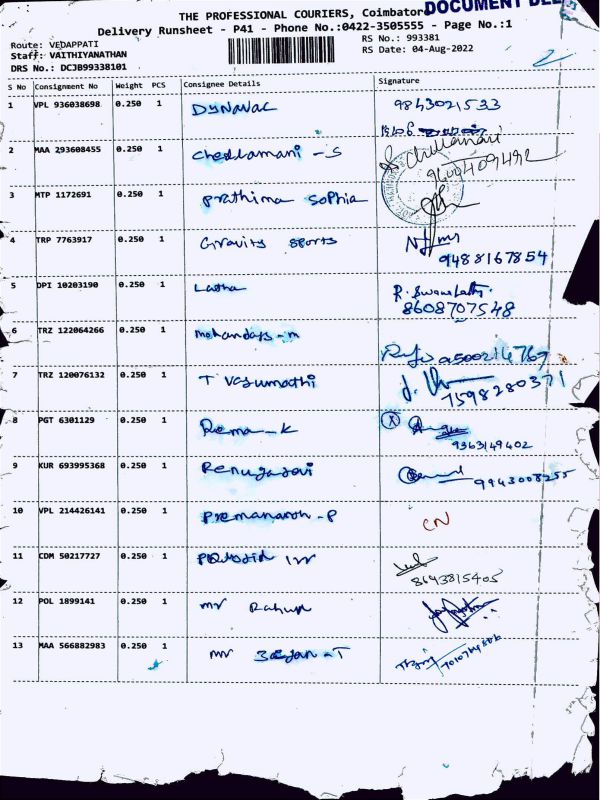 THE PROFESSIONAL COURIERS, Coimbatore
DOCUMENT DEL
Delivery Runsheet - P41 - Phone No.:0422-3505555 - Page No.:1
Route: VEDAPPATI
RS No.: 993381
Staff: VAITHIYANATHAN
RS Date: 04-Aug-2022
DRS No.: DCJB99338101
S No Consignment No Weight PCS Consignee Details Signature
1 VPL 936038698 0.250 1 9843021533
2 MAA 293608455 0.250 1 Chellamani - S
9600409492
3 MTP 1172691 0.250 1 Prathima Sophia
4 TRP 7763917 0.250 1 Gravity Sports
9488167854
5 DPI 10203190 0.250 1 Latha
8608707548
6 TRZ 122064266 0.250 1 mohandass - m
7 TRZ 120076132 0.250 1 T Vasumathi
7598280371
8 PGT 6301129 0.250 1 Rema - K
9363149402
9 KUR 693995368 0.250 1 Renugadevi 9943008255
10 VPL 214426141 0.250 1 CN
11 CDM 50217727 0.250 1
8643815405
12 POL 1899141 0.250 1 mr Rahul
13 MAA 566882983 0.250 1 mr